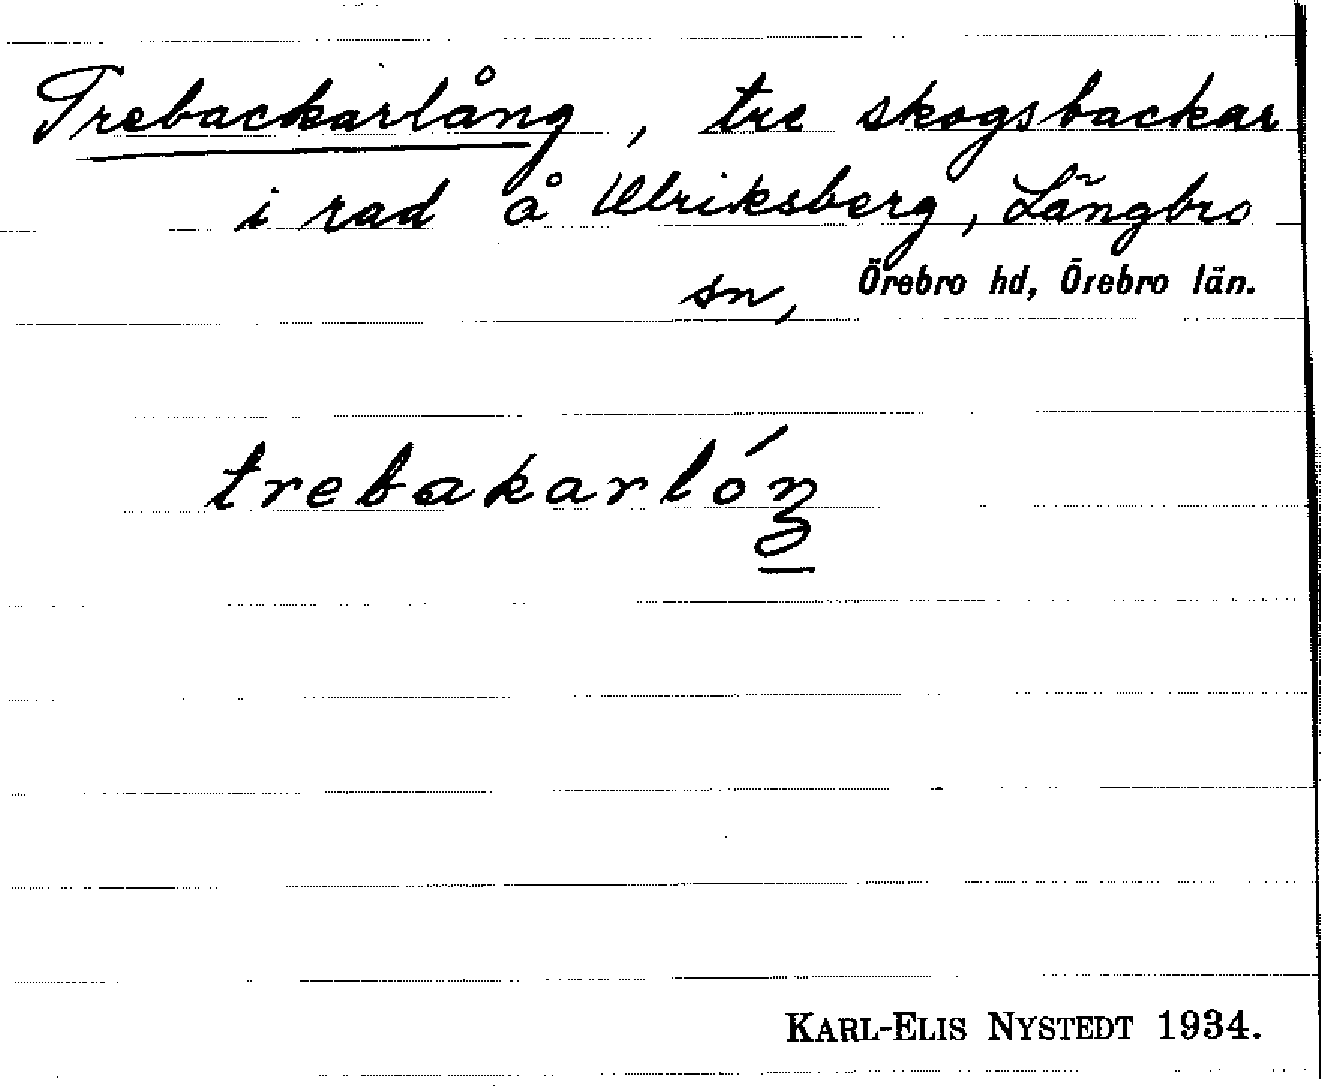 Trebackarlång, tre skogsbackar
i rad å Ulriksberg, Längbro
sn, Örebro hd, Örebro län.
trebakarlóŋ
KARL-ELIS NYSTEDT 1934.